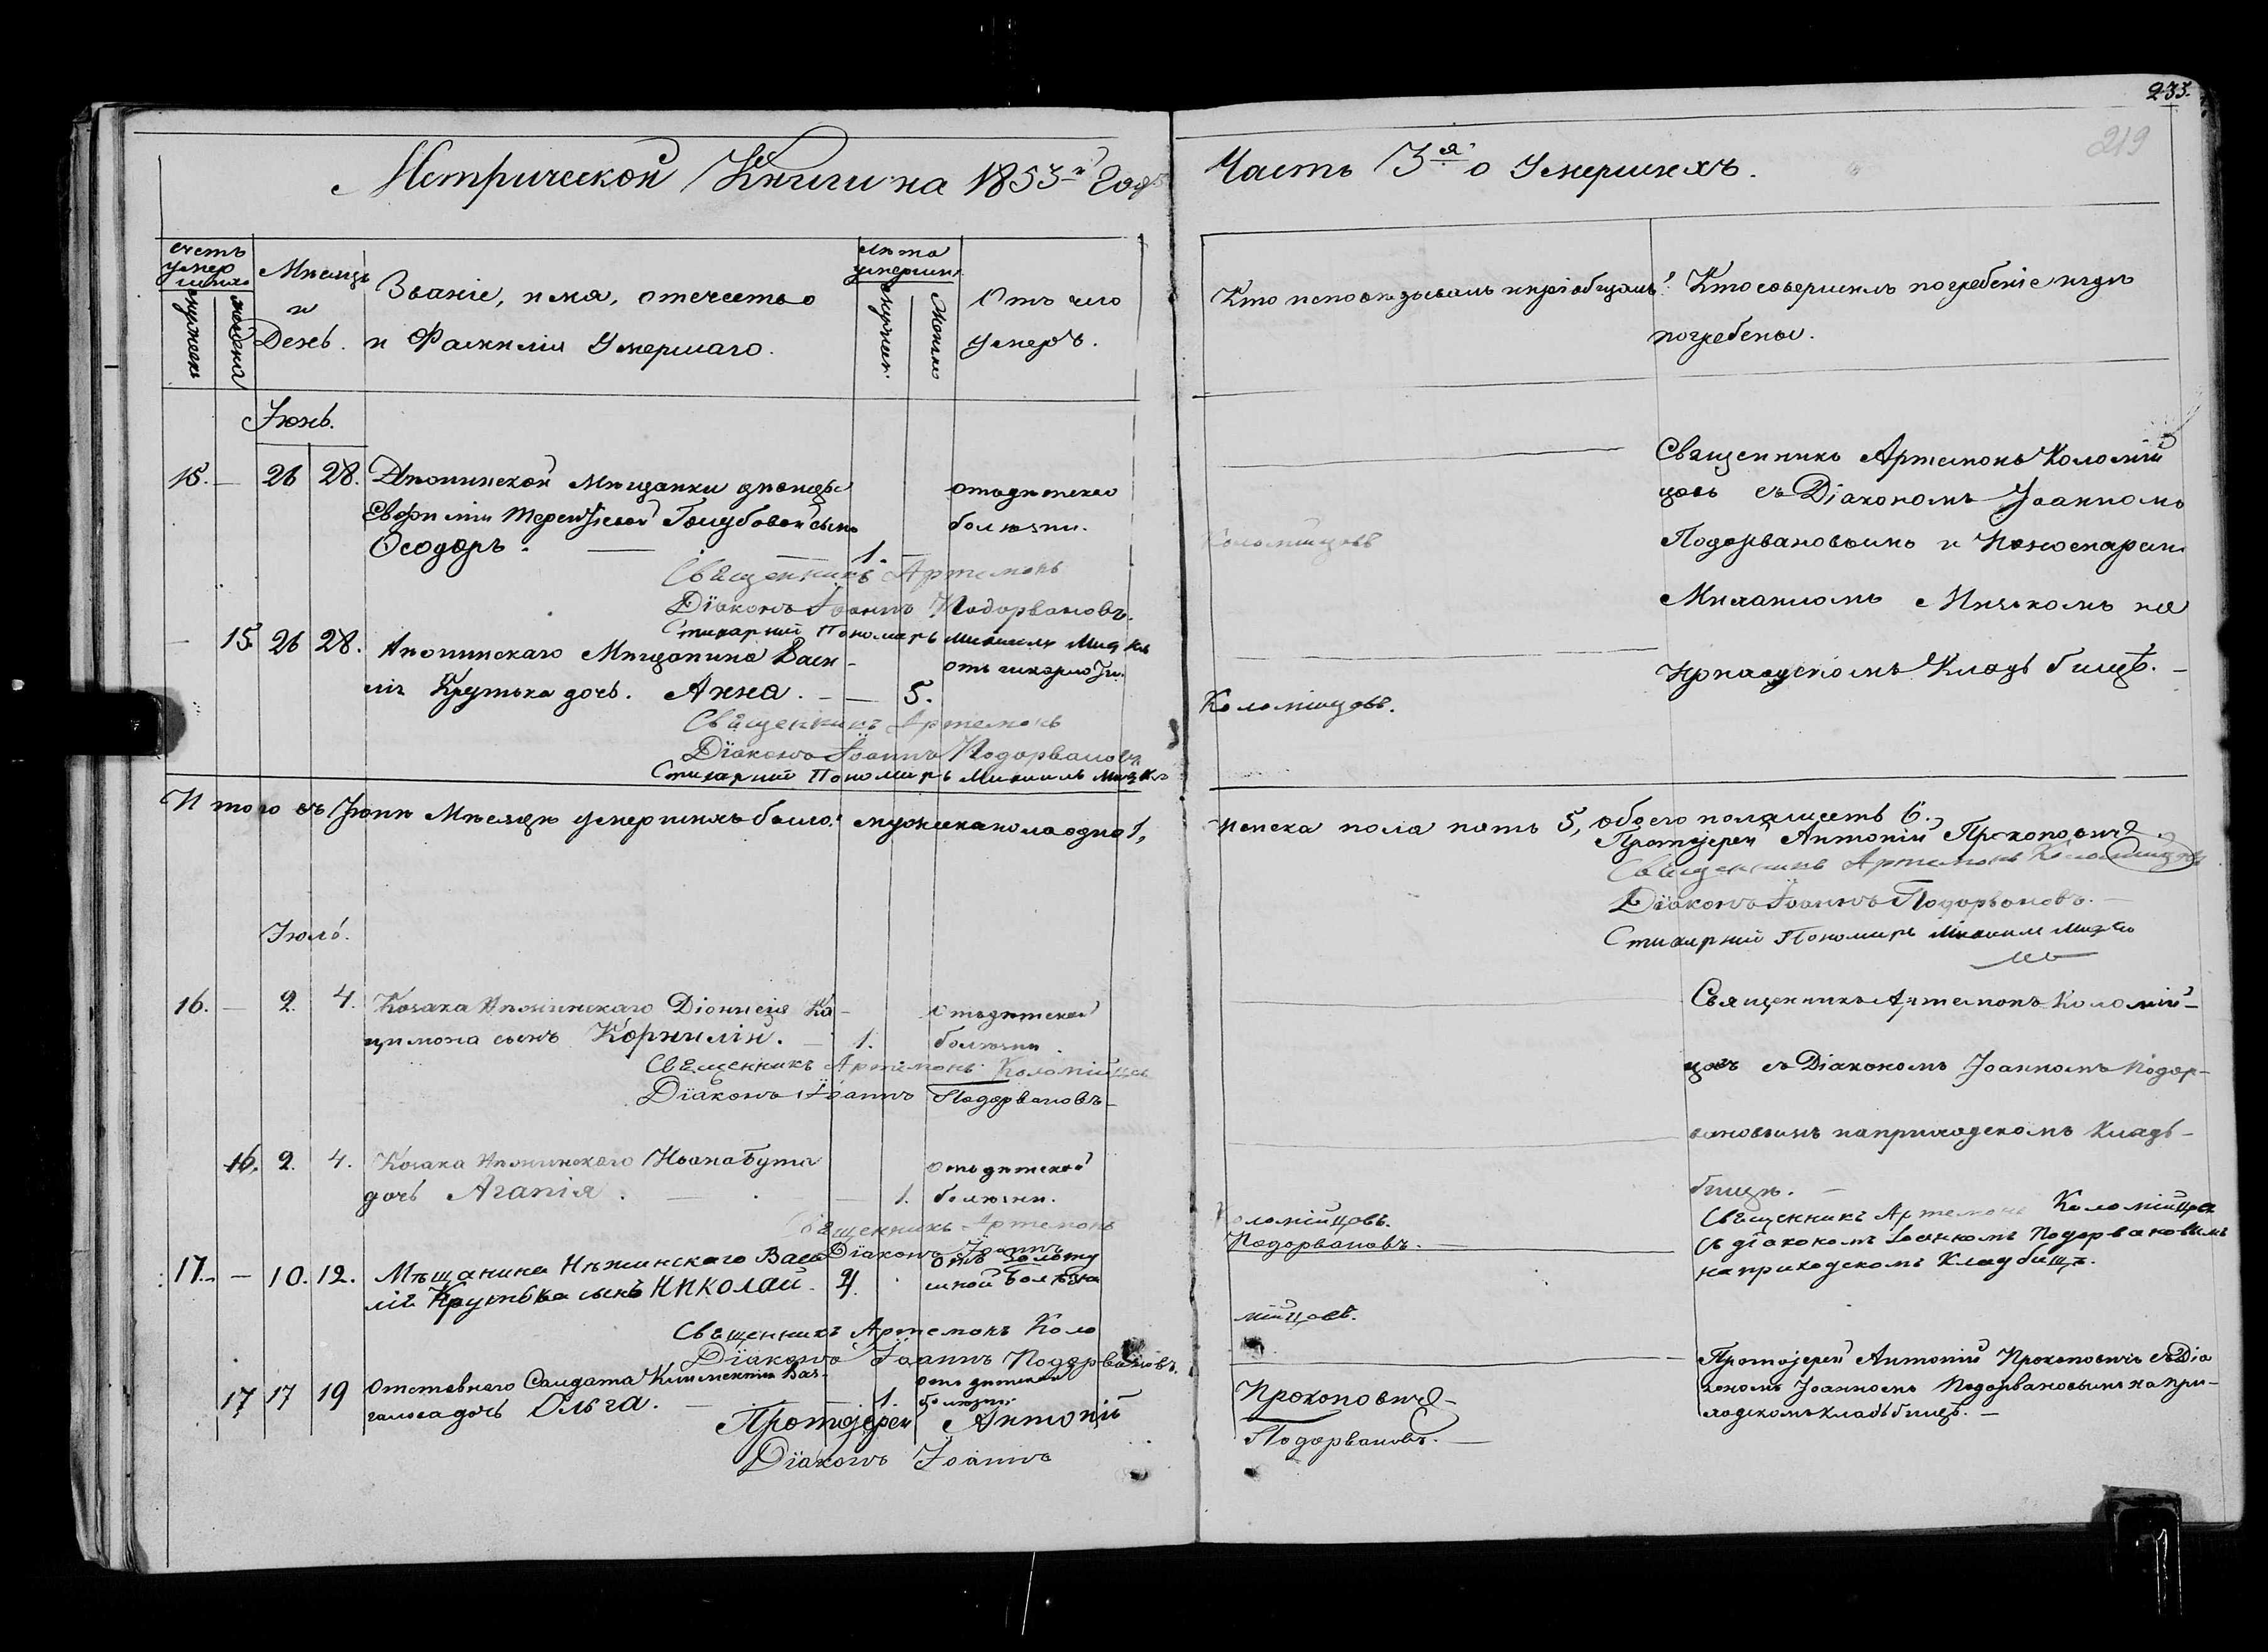 233.
219
Метрической Книги на 1853й Годъ
Часть 3я о Умершихъ.
Счетъ умершихъ
мужеска
женска
Мѣсяцъ и День.
Званіе, имя, отечество
и Фамилія Умершаго.
Лѣта умершихъ
мужеск.
женска
Отъ чего
умеръ.
Кто исповѣдывалъ и пріобщалъ?
Кто совершилъ погребеніе и гдѣ
погребены.
Іюнь.
15. — 26 28. Нѣжинской Мѣщанки дѣвицы
Евфиміи Терентіевой Голубовой сынъ
Ѳеодоръ. — 1. —
отъ дѣтской
болѣзни.
Священникъ Артемонъ Коломійцовъ
Діаконъ Іоаннъ Подорвановъ.
Стихарный Пономарь Михаилъ
Священникъ Артемонъ Коломій
цовъ съ Діакономъ Іоанномъ
Подорвановымъ и Пономаремъ
Михаиломъ на
приходскомъ Кладбищѣ. —
— 15. 26 28. Нѣжинскаго Мѣщанина Васи-
лія Крутька дочь. Анна. — — 5.
отъ
Священникъ Артемонъ Коломійцовъ.
Діаконъ Іоаннъ Подорвановъ
Стихарный Пономарь Михаилъ
Итого въ Іюнѣ Мѣсяцѣ умершихъ было: мужеска пола одно 1, женска пола пять 5, обоего пола шесть 6.
Протоіерей Антоній Прокоповичъ.
Священникъ Артемонъ Коломійцовъ
Діаконъ Іоаннъ Подорвановъ. —
Стихарный Пономарь Михаилъ
Іюль.
16. — 2. 4. Козака Нѣжинскаго Діонисія Ка-
цимона сынъ Корнилій. — 1.
отъ дѣтской
болѣзни.
Священникъ Артемонъ Коломійцовъ
Діаконъ Іоаннъ Подорвановъ —
Священникъ Артемонъ Коломій-
цовъ съ Діакономъ Іоанномъ Подор-
вановымъ на приходскомъ Кладъ-
бищѣ. —
16. 2. 4. Козака Нѣжинскаго Ивана Бута
дочь Агапія. — — 1.
отъ дѣтской
болѣзни.
Священникъ Артемонъ Коломійцовъ.
Діаконъ Іоаннъ Подорвановъ. —
17. — 10. 12. Мѣщанина Нѣжинскаго Васи
лія Крутька сынъ Николай.
отъ золоту
шной болѣзни
Священникъ Артемонъ Коломійцовъ.
Діаконъ Іоаннъ Подорвановъ.
Священникъ Артемонъ Коломійцовъ
съ діакономъ Іоанномъ Подорвановымъ
на приходскомъ Кладбищѣ.
17 17 19 Отставного Салдата Климентія
дочь Ольга. — 1.
отъ дѣтской
болѣзни
Протоіерей Антоній Прокоповичъ —
Діаконъ Іоаннъ Подорвановъ. —
Протоіерей Антоній Прокоповичъ съ Діа
кономъ Іоанномъ Подорвановымъ на при-
ходскомъ кладъбищѣ. —